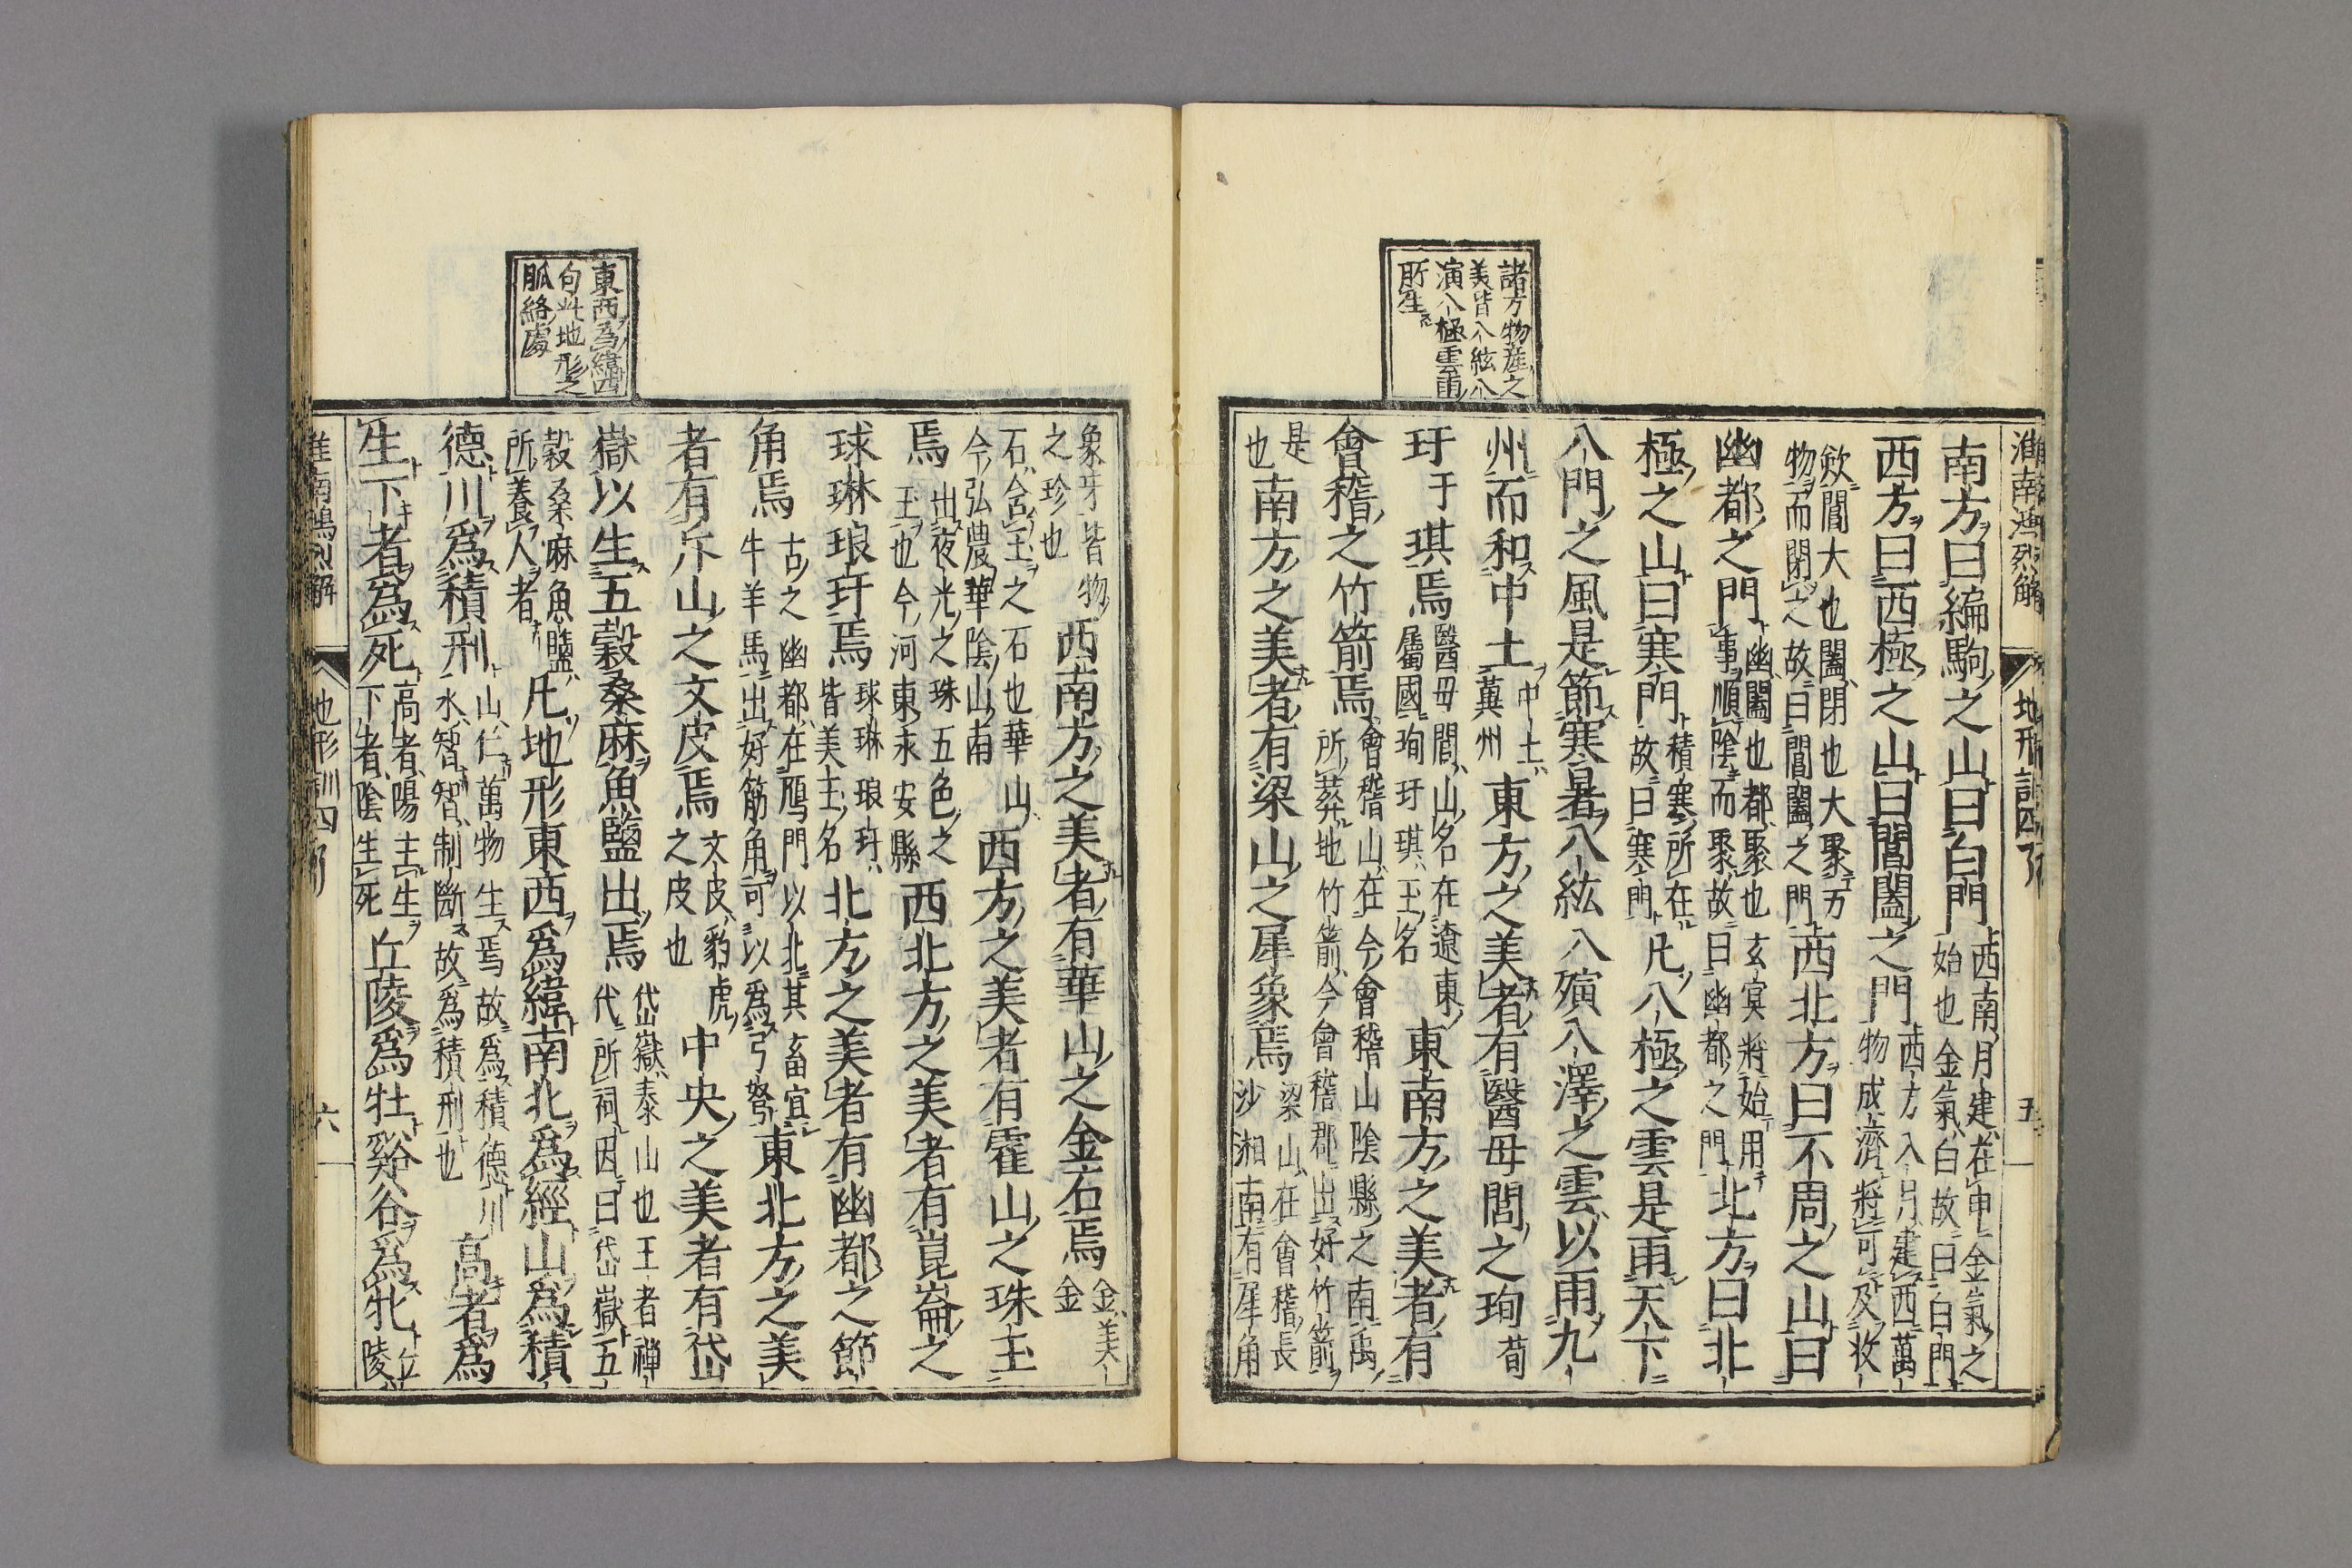 諸方物産之
美皆八紘八
演八極雲雨
所生
淮南鴻烈解 地形訓四 五
南方曰編駒之山曰白門西南月建在申金氣之始也金氣白故曰白門
西方曰西極之山曰閶闔之門西方八月建酉萬物成濟將可及收
斂閶大也闔閉也大聚万物而閉之故曰閶闔之門西北方曰不周之山曰
幽都之門幽闔也都聚也玄冥將始用事順陰而聚故曰幽都之門北方曰北
極之山曰寒門積寒所在故曰寒門凡八極之雲是雨天下
八門之風是節寒暑八紘八殥八澤之雲以雨九
州而和中土中土冀州東方之美者有醫毋閭之珣荀
玗于琪焉醫毋閭山名在遼東屬國珣玗琪玉名東南方之美者有
會稽之竹箭焉會稽山在今會稽山陰縣之南禹所葬地竹箭今會稽郡出好竹箭
是也南方之美者有梁山之犀象焉梁山在會稽長沙湘南有犀角
東西爲緯四
句此地形之
脈絡處
象牙皆物之珍也西南方之美者有華山之金石焉金美金
石含玉之石也華山今弘農華陰山南西方之美者有霍山之珠玉
焉出夜光之珠五色之玉也今河東永安縣西北方之美者有崑崙之
球琳琅玕焉球琳琅玕皆美玉名北方之美者有幽都之筋
角焉古之幽都在鴈門以北其畜宜牛羊馬出好筋角可以爲弓弩東北方之美
者有斥山之文皮焉文皮豹虎之皮也中央之美者有岱
嶽以生五穀桑麻魚鹽出焉岱嶽泰山也王者禪代所祠因曰岱嶽五
穀桑麻魚鹽所養人者凡地形東西爲緯南北爲經山爲積
德川爲積刑山仁萬物生焉故爲積德川水智智制斷故爲積刑也高者爲
生下者爲死高者陽主生下者陰主死丘陵爲牡谿谷爲牝丘陵
淮南鴻烈解 地形訓四 六